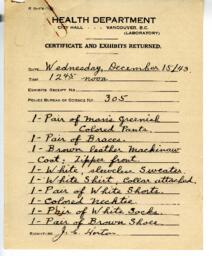 HEALTH DEPARTMENT
CITY HALL VANCOUVER, B.C.
(LABORATORY)
CERTIFICATE AND EXHIBITS RETURNED.
DATE Wednesday, December 15/43
TIME 1245 noon
EXHIBITS RECEIPT No
POLICE BUREAU OF SCIENCE No. 305
1 - Pair of Man's Greenish
Colored Pants.
1 - Pair of Braces.
1 - Brown leather Mackinaw
Coat: Zipper front.
1 - White, sleeveless Sweater.
1 - White Shirt, Collar attached.
1 - Pair of White Shorts.
1 - Colored Necktie
1 - Pair of White Socks.
1 - Pair of Brown Shoes.
SIGNATURE J. F. Horton